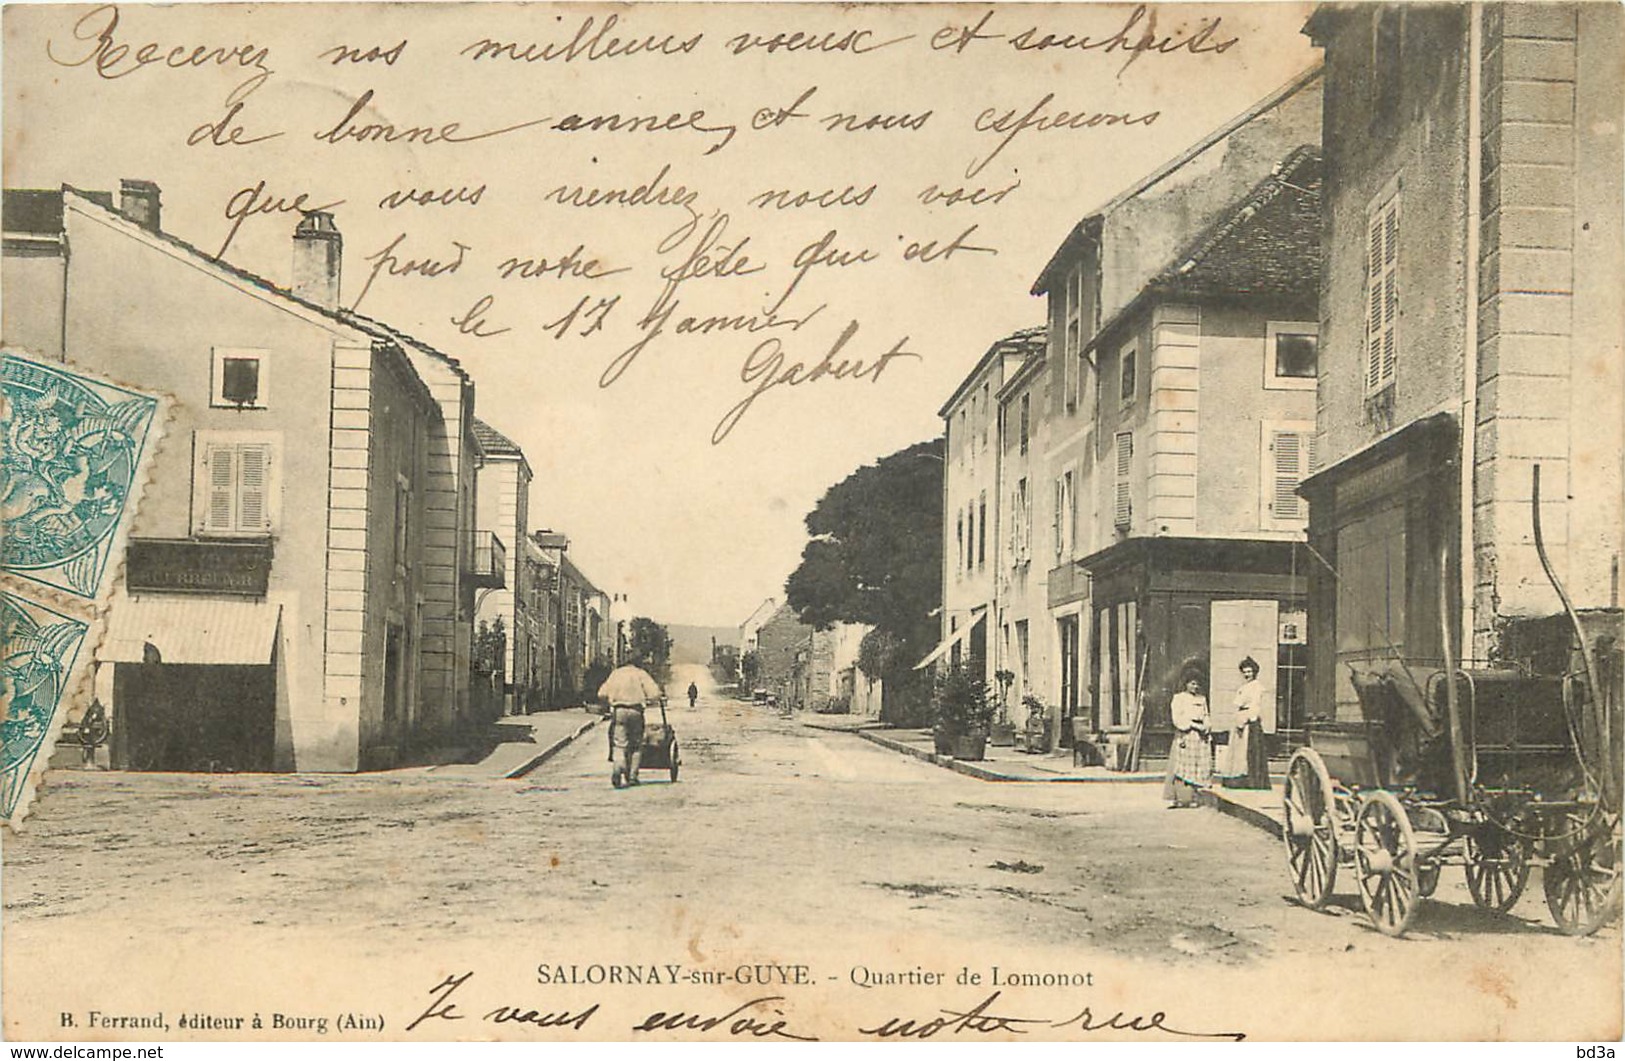 Recevez nos meilleurs voeux et souhaits
de bonne annee, et nous esperons
que vous viendrez nous voir
pour notre fête qui est
le 17 Janvier
Gabert
SALORNAY-sur-GUYE. - Quartier de Lomonot
B. Ferrand, éditeur à Bourg (Ain)
Je vous envoie notre rue
delcampe.net
bd3a